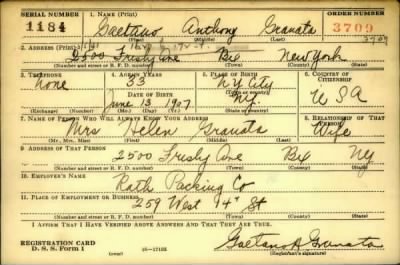 SERIAL NUMBER 1. NAME (Print) ORDER NUMBER
1184 Gaetano Anthony Granata 3709
(First) (Middle) (Last)
2. ADDRESS (Print)
2500 Ave Bx New York
(Number and street or R. F. D. number) (Town) (County) (State)
3. TELEPHONE 4. AGE IN YEARS 5. PLACE OF BIRTH 6. COUNTRY OF CITIZENSHIP
None 33 N.Y. City
DATE OF BIRTH (Town or county)
June 13 1907 N.Y. U S A
(Exchange) (Number) (Mo.) (Day) (Yr.) (State or country)
7. NAME OF PERSON WHO WILL ALWAYS KNOW YOUR ADDRESS 8. RELATIONSHIP OF THAT PERSON
Mrs Helen Granata Wife
(Mr., Mrs., Miss) (First) (Middle) (Last)
9. ADDRESS OF THAT PERSON
2500 Ave Bx NY
(Number and street or R. F. D. number) (Town) (County) (State)
10. EMPLOYER'S NAME
Rath Packing Co
11. PLACE OF EMPLOYMENT OR BUSINESS
259 West 14 St
(Number and street or R. F. D. number) (Town) (County) (State)
I AFFIRM THAT I HAVE VERIFIED ABOVE ANSWERS AND THAT THEY ARE TRUE.
REGISTRATION CARD
D. S. S. Form 1 Gaetano A Granata
(Registrant's signature)